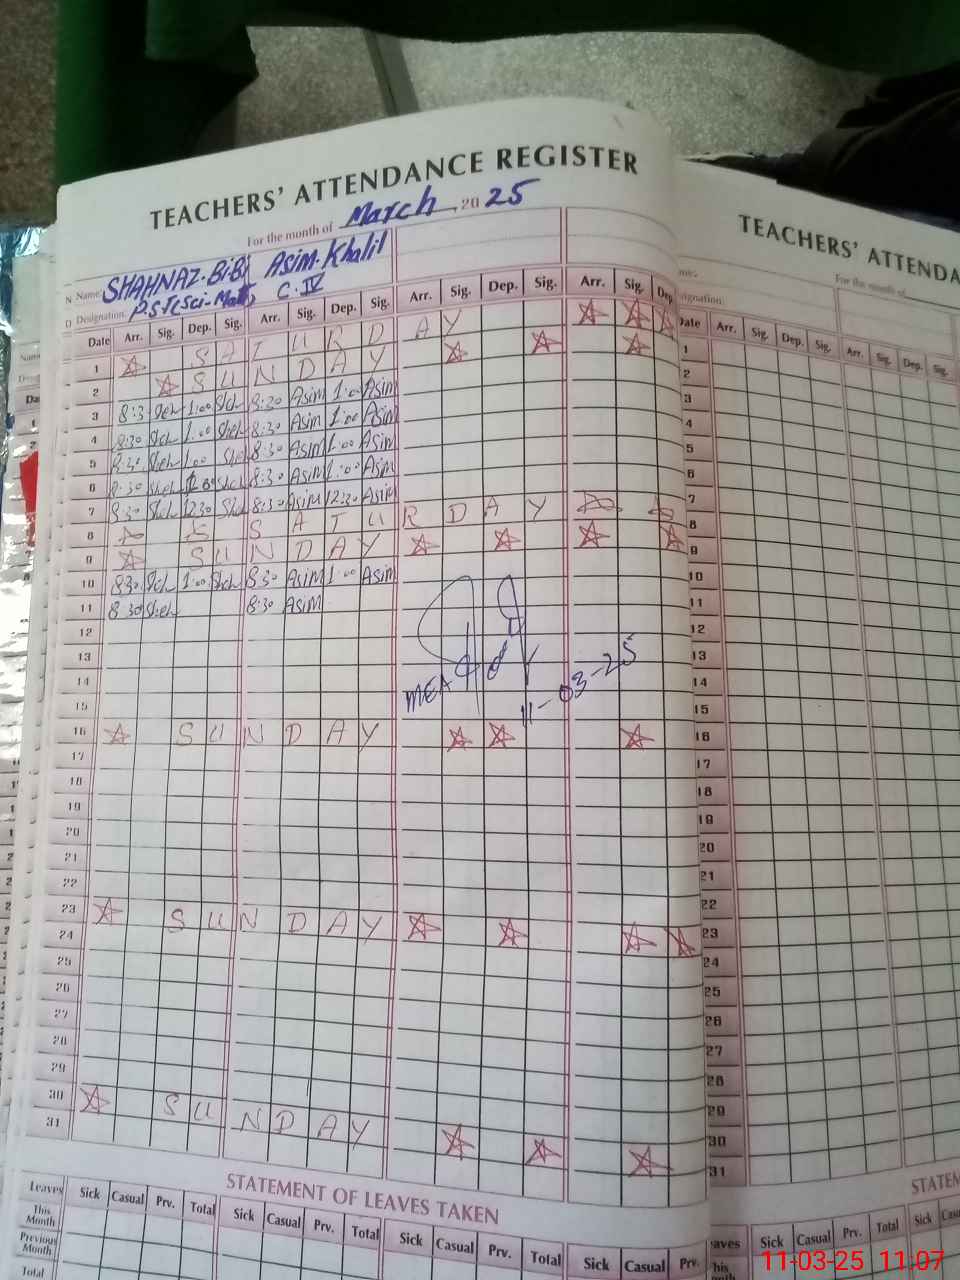 TEACHERS' ATTENDANCE REGISTER
For the month of March 2025
Name: SHAHNAZ.BiBi Asim.Khalil
Designation: P.S.T(Sci-Math) C.IV
Date Arr. Sig. Dep. Sig. Arr. Sig. Dep. Sig. Arr. Sig. Dep. Sig. Arr. Sig. Dep.
1 SATURDAY
2 SUNDAY
3 8:3 Sheh 1:00 Sheh 8:30 Asim 1:00 Asim
4 8:30 Sheh 1:00 Sheh 8:30 Asim 1:00 Asim
5 8:30 Sheh 1:00 Sheh 8:30 Asim 1:00 Asim
6 8:30 Sheh 1:00 Sheh 8:30 Asim 1:00 Asim
7 8:30 Sheh 12:30 Sheh 8:30 Asim 12:30 Asim
8 SATURDAY
9 SUNDAY
10 8:30 Sheh 1:00 Sheh 8:30 Asim 1:00 Asim
11 8:30 Sheh 8:30 Asim
12
13
14
MEA 11-03-25
15
16 SUNDAY
17
18
19
20
21
22
23 SUNDAY
24
25
26
27
28
29
30 SUNDAY
31
STATEMENT OF LEAVES TAKEN
Leaves Sick Casual Prv. Total Sick Casual Prv. Total Sick Casual Prv. Total Sick Casual Prv.
This Month
Previous Month
Total
TEACHERS' ATTENDA
For the month of
Designation:
Date Arr. Sig. Dep. Sig. Arr. Sig. Dep. Sig.
1
2
3
4
5
6
7
8
9
10
11
12
13
14
15
16
17
18
19
20
21
22
23
24
25
26
27
28
29
30
31
STATEM
eaves Sick Casual Prv. Total Sick
11-03-25 11.07